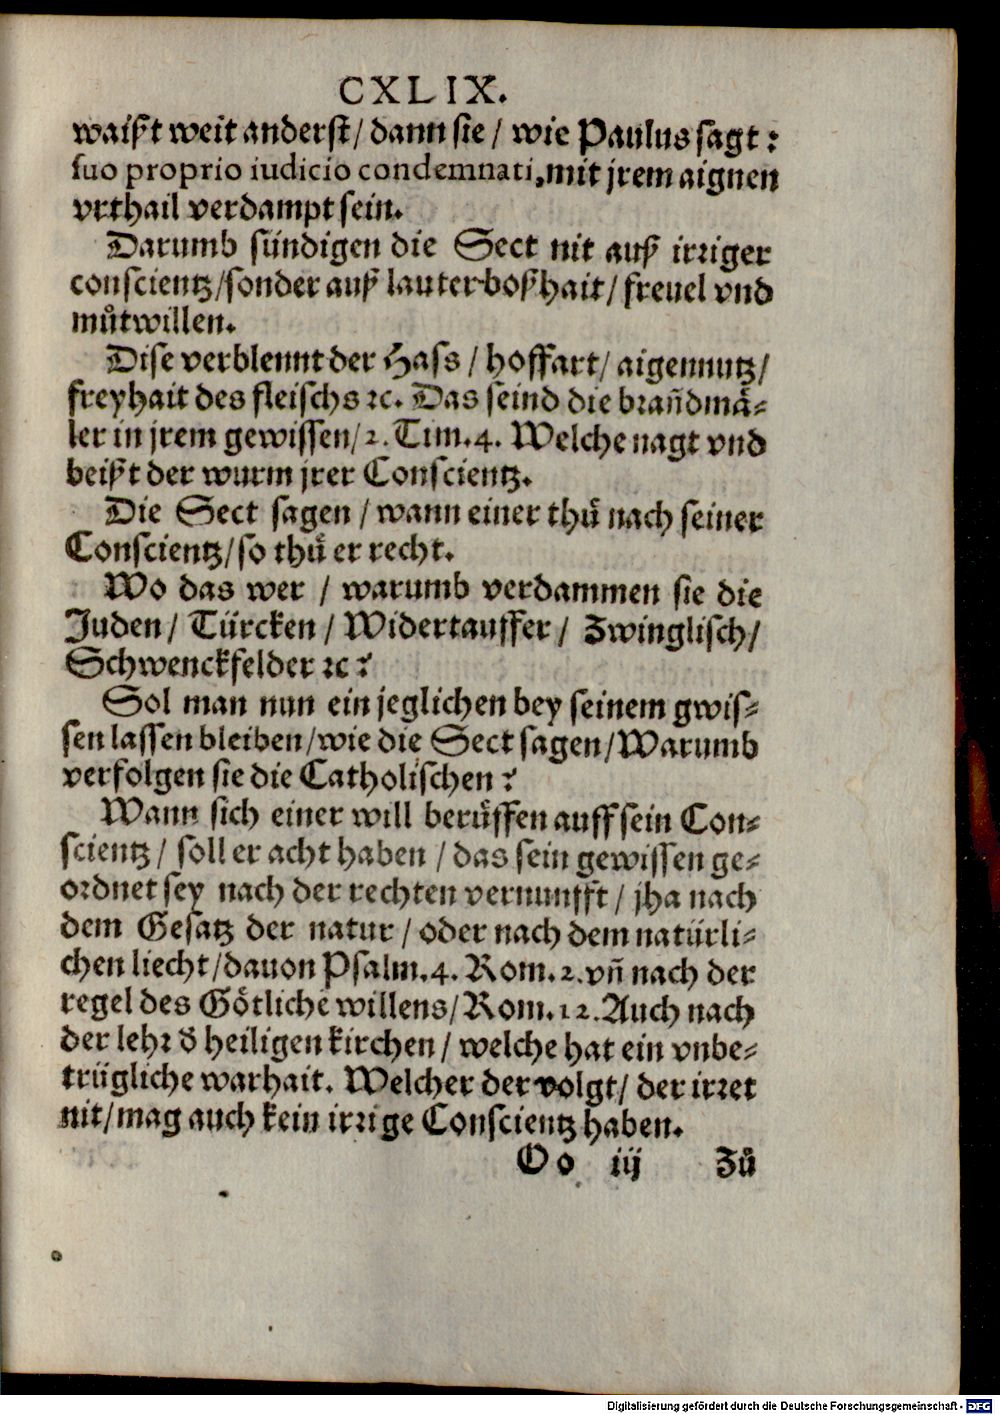 CXLIX.
waißt weit anderst/ dann sie/ wie Paulus sagt:
suo proprio iudicio condemnati, mit jrem aignen
vrthail verdampt sein.
Darumb sündigen die Sect nit auß irriger
conscientz/ sonder auß lauter boßhait/ freuel vnd
můtwillen.
Dise verblennt der Hass/ hoffart/ aigennutz/
freyhait des fleischs ꝛc. Das seind die brañdmä-
ler in jrem gewissen/ 2. Tim. 4. Welche nagt vnd
beißt der wurm jrer Conscientz.
Die Sect sagen/ wann einer thů nach seiner
Conscientz/ so thů er recht.
Wo das wer/ warumb verdammen sie die
Juden/ Türcken/ Widertauffer/ Zwinglisch/
Schwenckfelder ꝛc?
Sol man nun ein jeglichen bey seinem gwis-
sen lassen bleiben/ wie die Sect sagen/ Warumb
verfolgen sie die Catholischen?
Wann sich einer will berůffen auff sein Con-
scientz/ soll er acht haben/ das sein gewissen ge-
ordnet sey nach der rechten vernunfft/ jha nach
dem Gesatz der natur/ oder nach dem natürli-
chen liecht/ dauon Psalm. 4. Rom. 2. vñ nach der
regel des Götlichē willens/ Rom. 12. Auch nach
der lehr ď heiligen kirchen/ welche hat ein vnbe-
trügliche warhait. Welcher der volgt/ der irret
nit/ mag auch kein irrige Conscientz haben.
Oo iij Zů
Digitalisierung gefördert durch die Deutsche Forschungsgemeinschaft - DFG